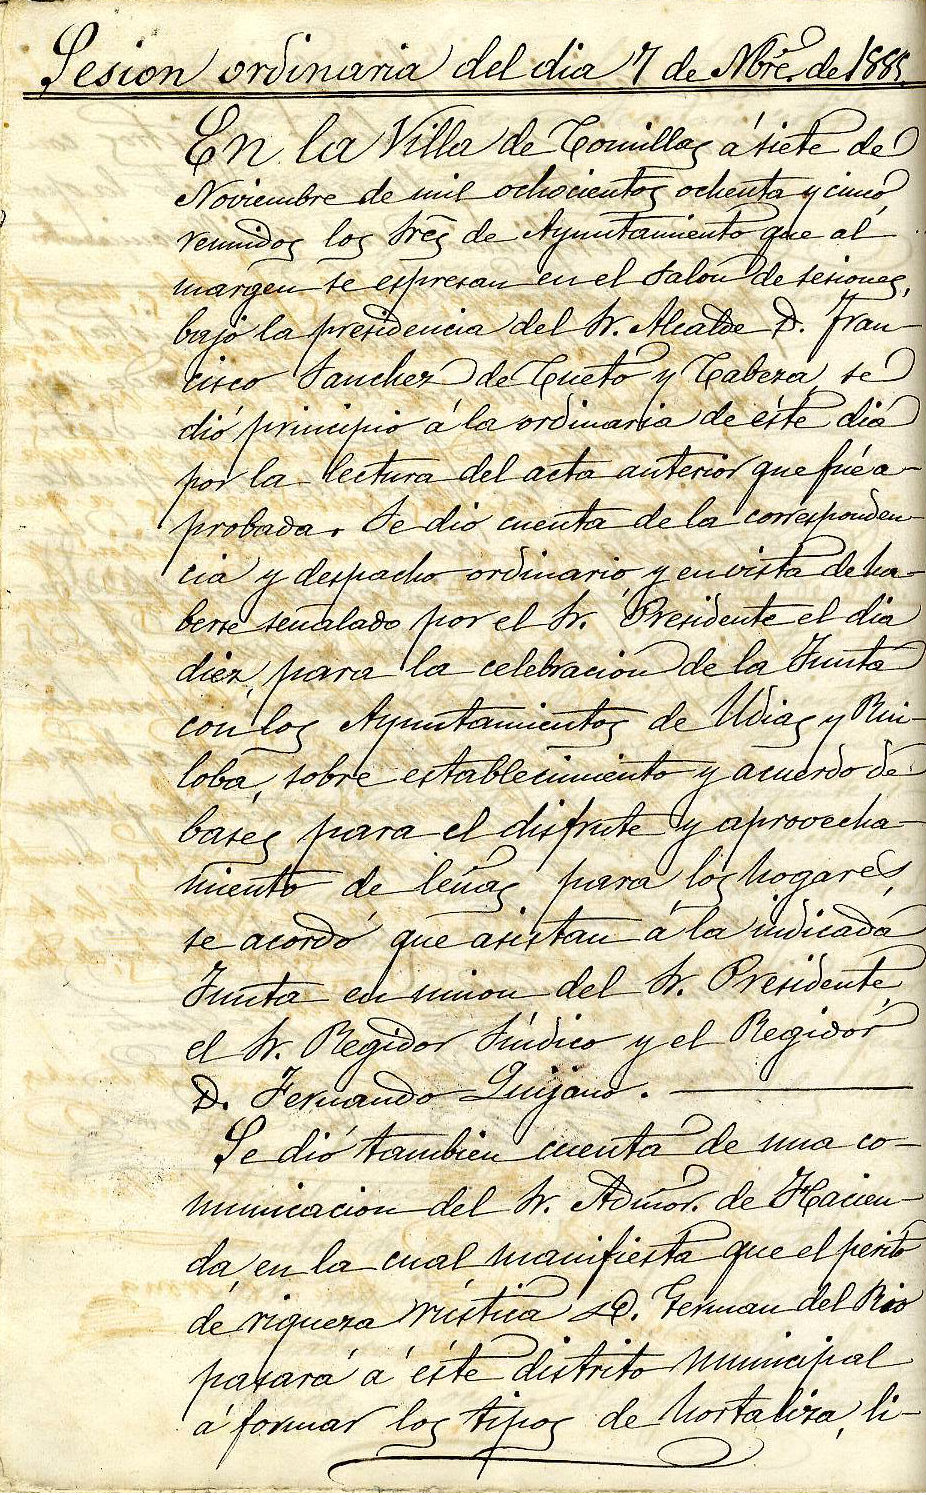 Sesion ordinaria del dia 7 de Nbre. de 1885
En la Villa de Comillas á siete de
Noviembre de mil ochocientos ochenta y cinco,
reunidos los Sres de Ayuntamiento que al
margen se espresan en el Salon de sesiones,
bajo la presidencia del Sr. Alcalde D. Fran-
cisco Sanchez de Cueto y Cabeza, se
dió principio á la ordinaria de éste dia
por la lectura del acta anterior que fué a-
probada. Se dio cuenta de la corresponden-
cia y despacho ordinario y en vista de ha-
berse señalado por el Sr. Presidente el dia
diez, para la celebracion de la Junta
con los Ayuntamientos de Udias y Rui-
loba, sobre establecimiento y acuerdo de
bases para el disfrute y aprovecha-
miento de leñas para los hogares,
se acordó que asistan á la indicada
Junta en union del Sr. Presidente,
el Sr. Regidor Síndico y el Regidor
D. Fernando Quijano.
Se dió tambien cuenta de una co-
municacion del Sr. Admor. de Hacien-
da, en la cual manifiesta que el perito
de riqueza rústica D. German del Rio
pasará á éste distrito municipal
á formar los tipos de hortaliza, li-